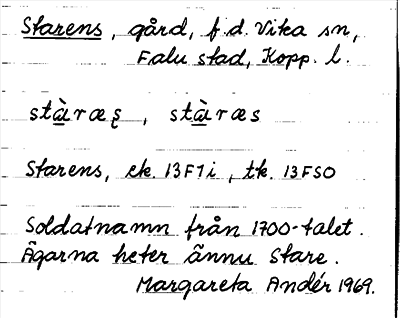 Starens, gård, f.d. Vika sn,
Falu stad, Kopp. l.
stàræş, stàræs
Starens, ek. 13F7i, tk. 13FSO
Soldatnamn från 1700-talet.
Ägarna heter ännu Stare.
Margareta Andér 1969.